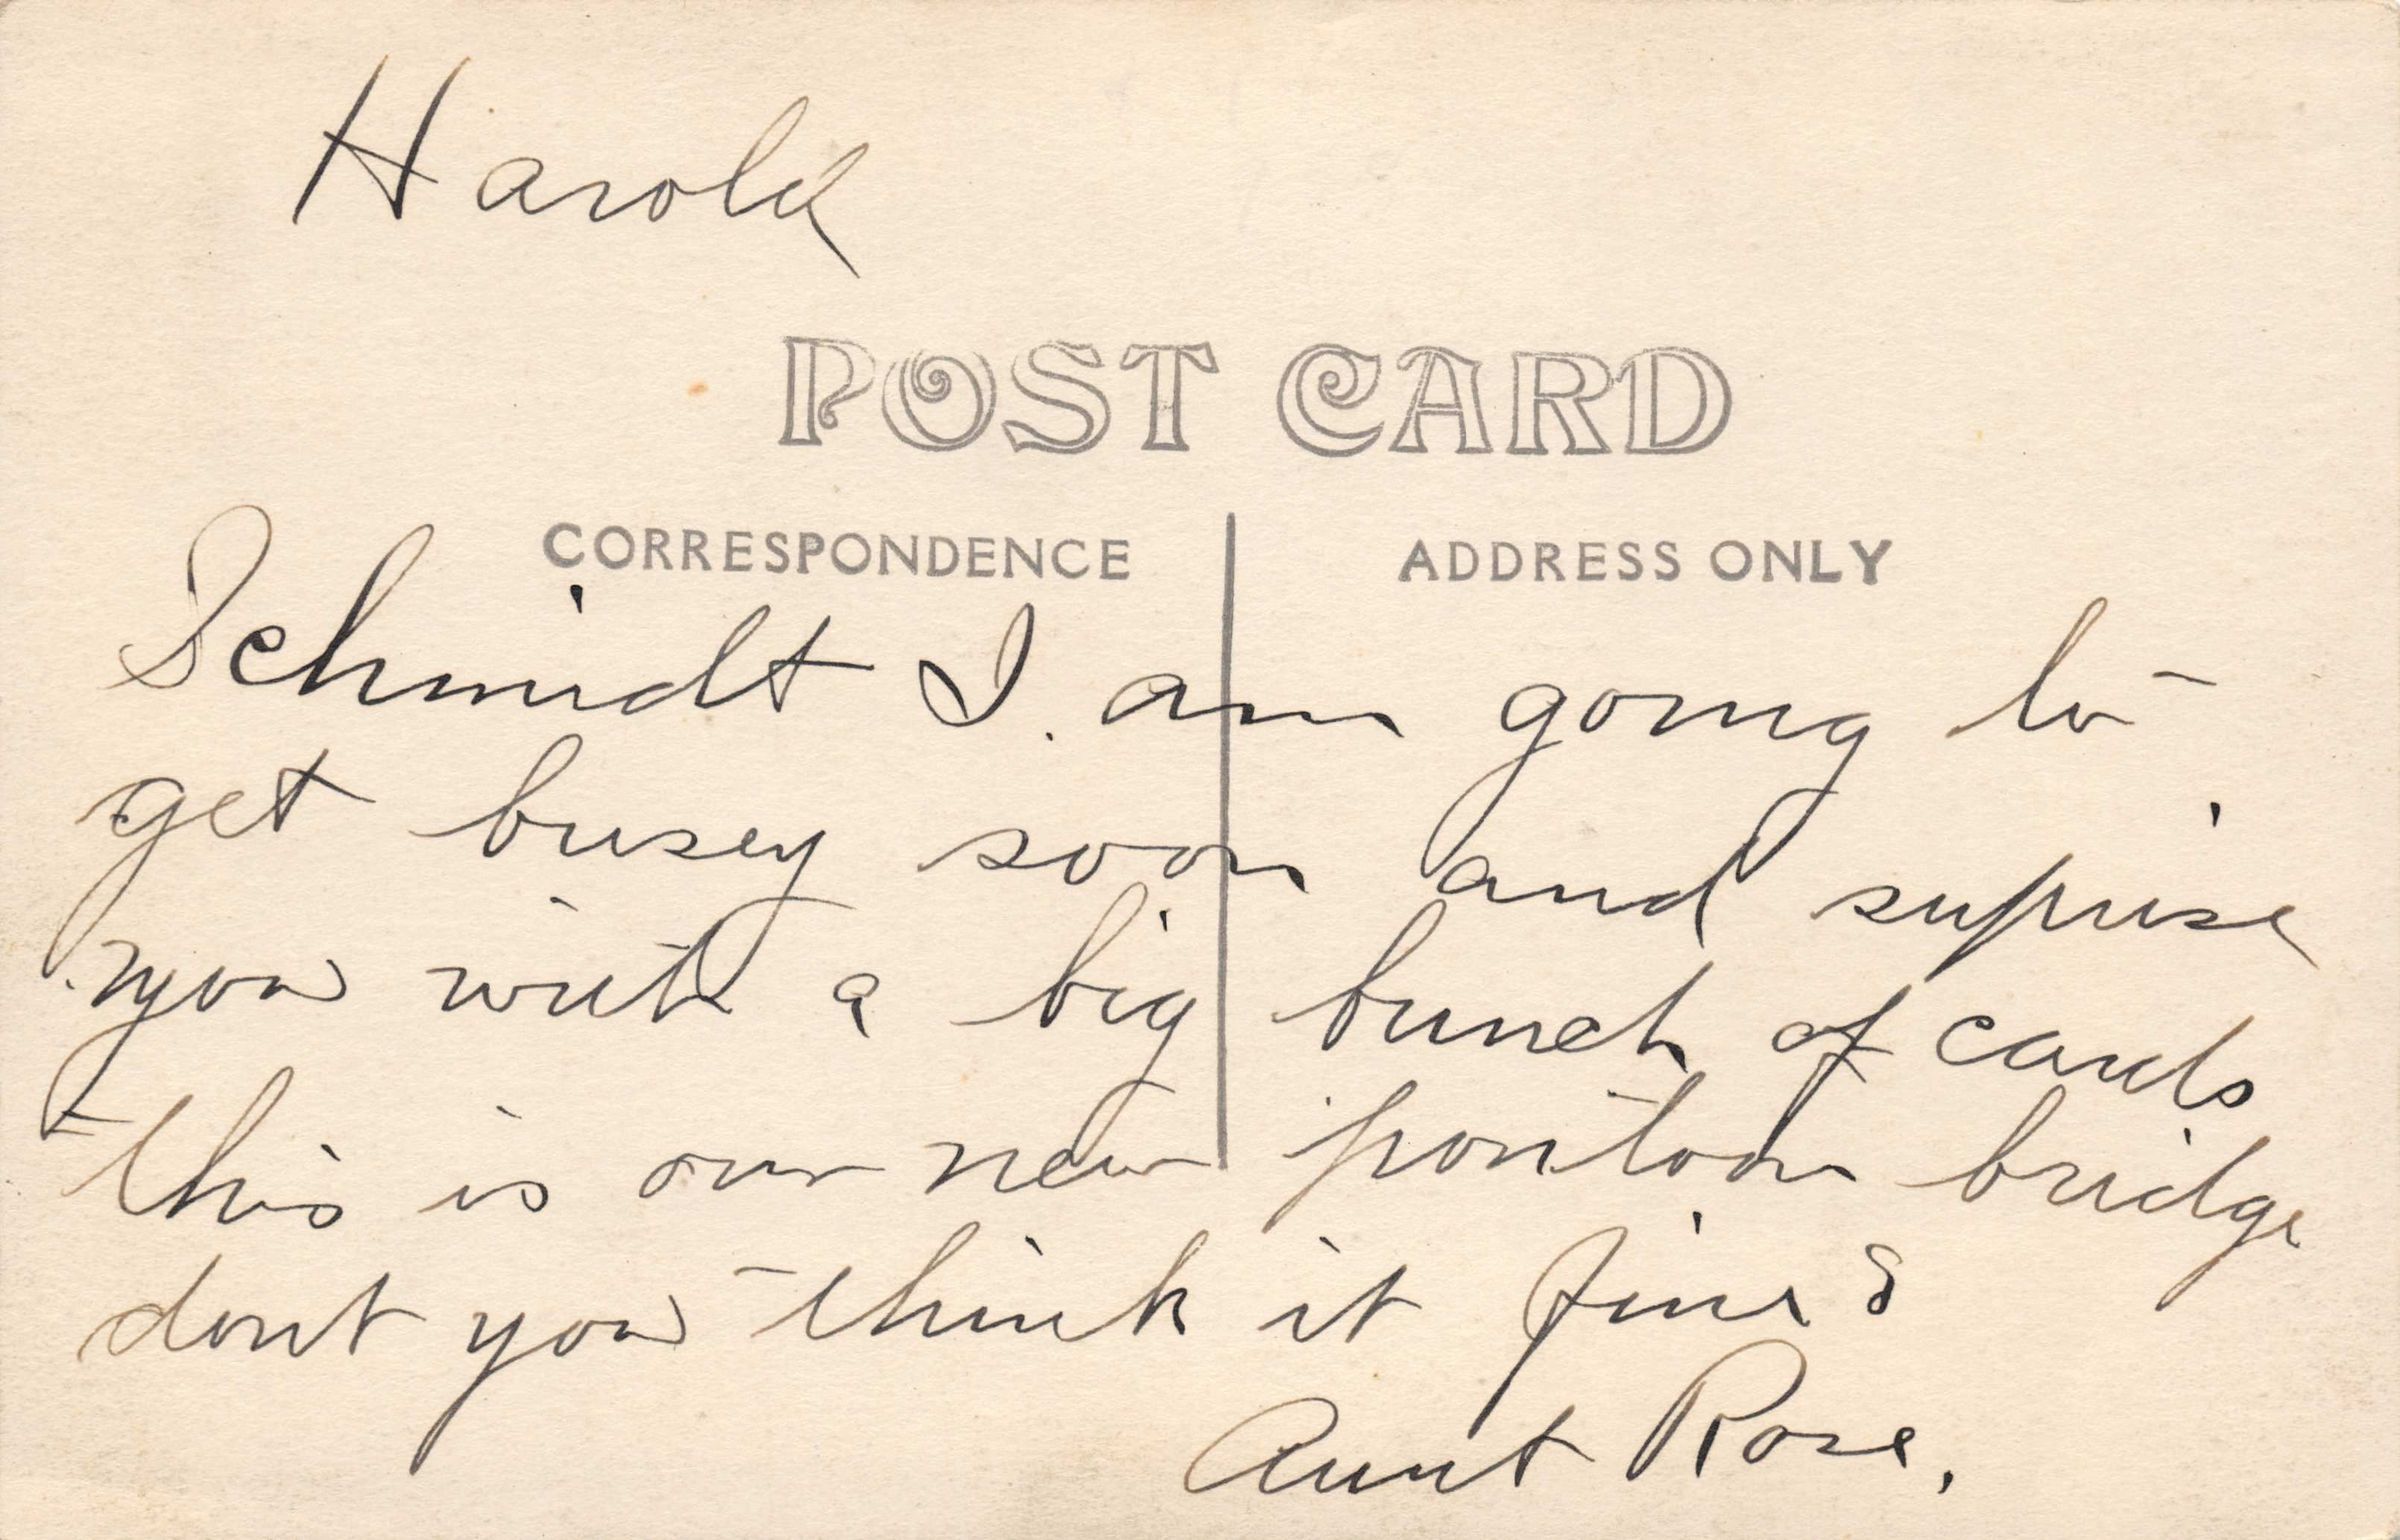 Harold
POST CARD
CORRESPONDENCE
ADDRESS ONLY
Schmidt I. am going to
get busey soon and suprise
you with a big bunch of cards
this is our new pontoon bridge
dont you think it fine?
Aunt Rose.